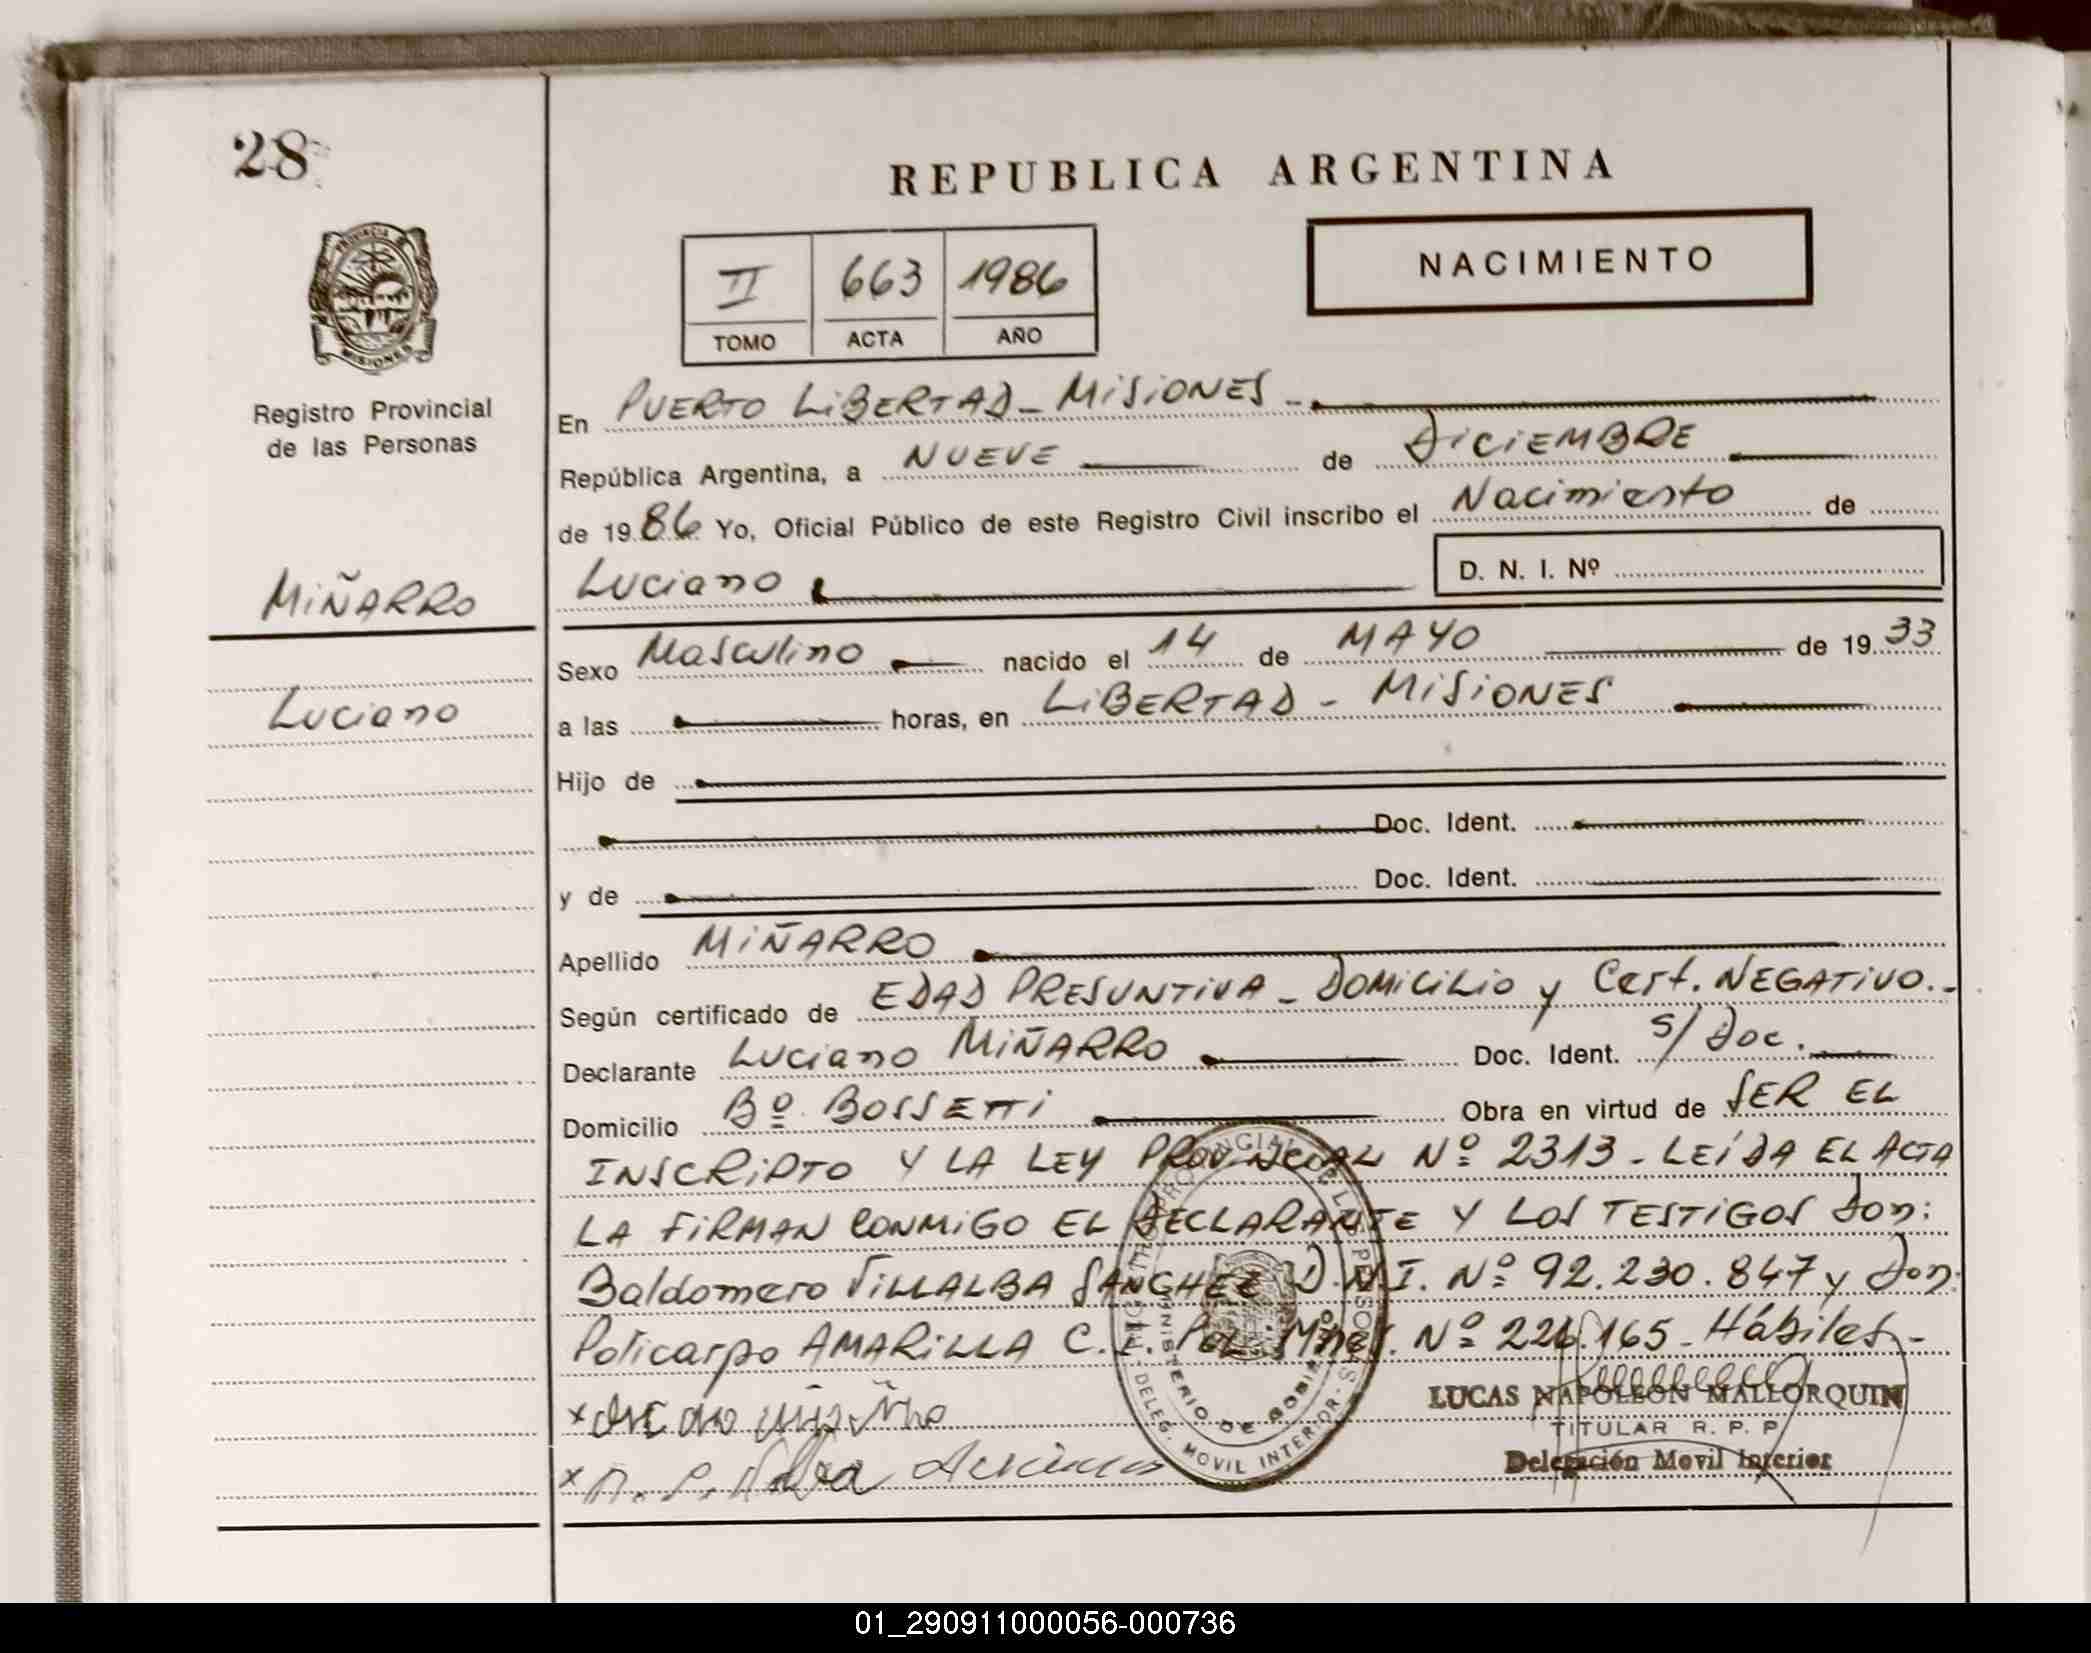 28
REPUBLICA ARGENTINA
PROVINCIA DE
MISIONES
Registro Provincial
de las Personas
II 663 1986
TOMO ACTA AÑO
NACIMIENTO
En PUERTO LIBERTAD - MISIONES -
República Argentina, a NUEVE de DICIEMBRE
de 1986 Yo, Oficial Público de este Registro Civil inscribo el Nacimiento de
Luciano D. N. I. Nº
MIÑARRO
Luciano
Sexo Masculino nacido el 14 de MAYO de 1933
a las horas, en LIBERTAD - MISIONES
Hijo de
Doc. Ident.
y de Doc. Ident.
Apellido MIÑARRO
Según certificado de EDAD PRESUNTIVA - DOMICILIO y Cert. NEGATIVO.-
Declarante Luciano MIÑARRO Doc. Ident. S/Doc.
Domicilio Bº BOSSETTI Obra en virtud de SER EL
INSCRIPTO Y LA LEY PROVINCIAL Nº 2313 - LEÍDA EL ACTA
LA FIRMAN CONMIGO EL DECLARANTE Y LOS TESTIGOS Don:
Baldomero VILLALBA SANCHEZ D.N.I. Nº 92.230.847 y Don:
Policarpo AMARILLA C.I. POL. Mnes. Nº 226.165 - Hábiles -
LUCAS NAPOLEON MALLORQUIN
TITULAR R. P. P.
Delegación Movil Interior
DELEG. MOVIL INTERIOR
01_290911000056-000736